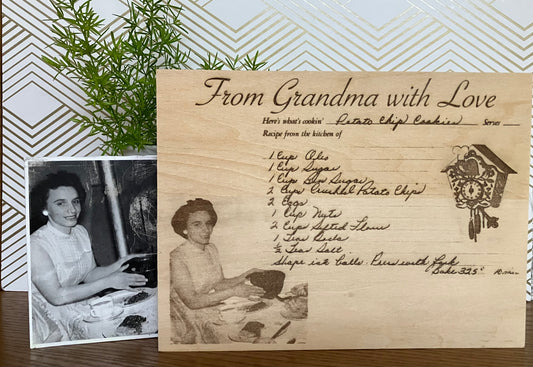 From Grandma with Love
Here's what's cookin' Potato Chip Cookies Serves
Recipe from the kitchen of
1 Cup Oleo
1 Cup Sugar
1 Cup Brn Sugar
2 Cup Crushed Potato Chips
2 Eggs
1 Cup Nuts
2 Cup Sifted Flour
1 Tea Soda
½ Tea Salt
Shape into balls. Press with fork
Bake 325° 10 min